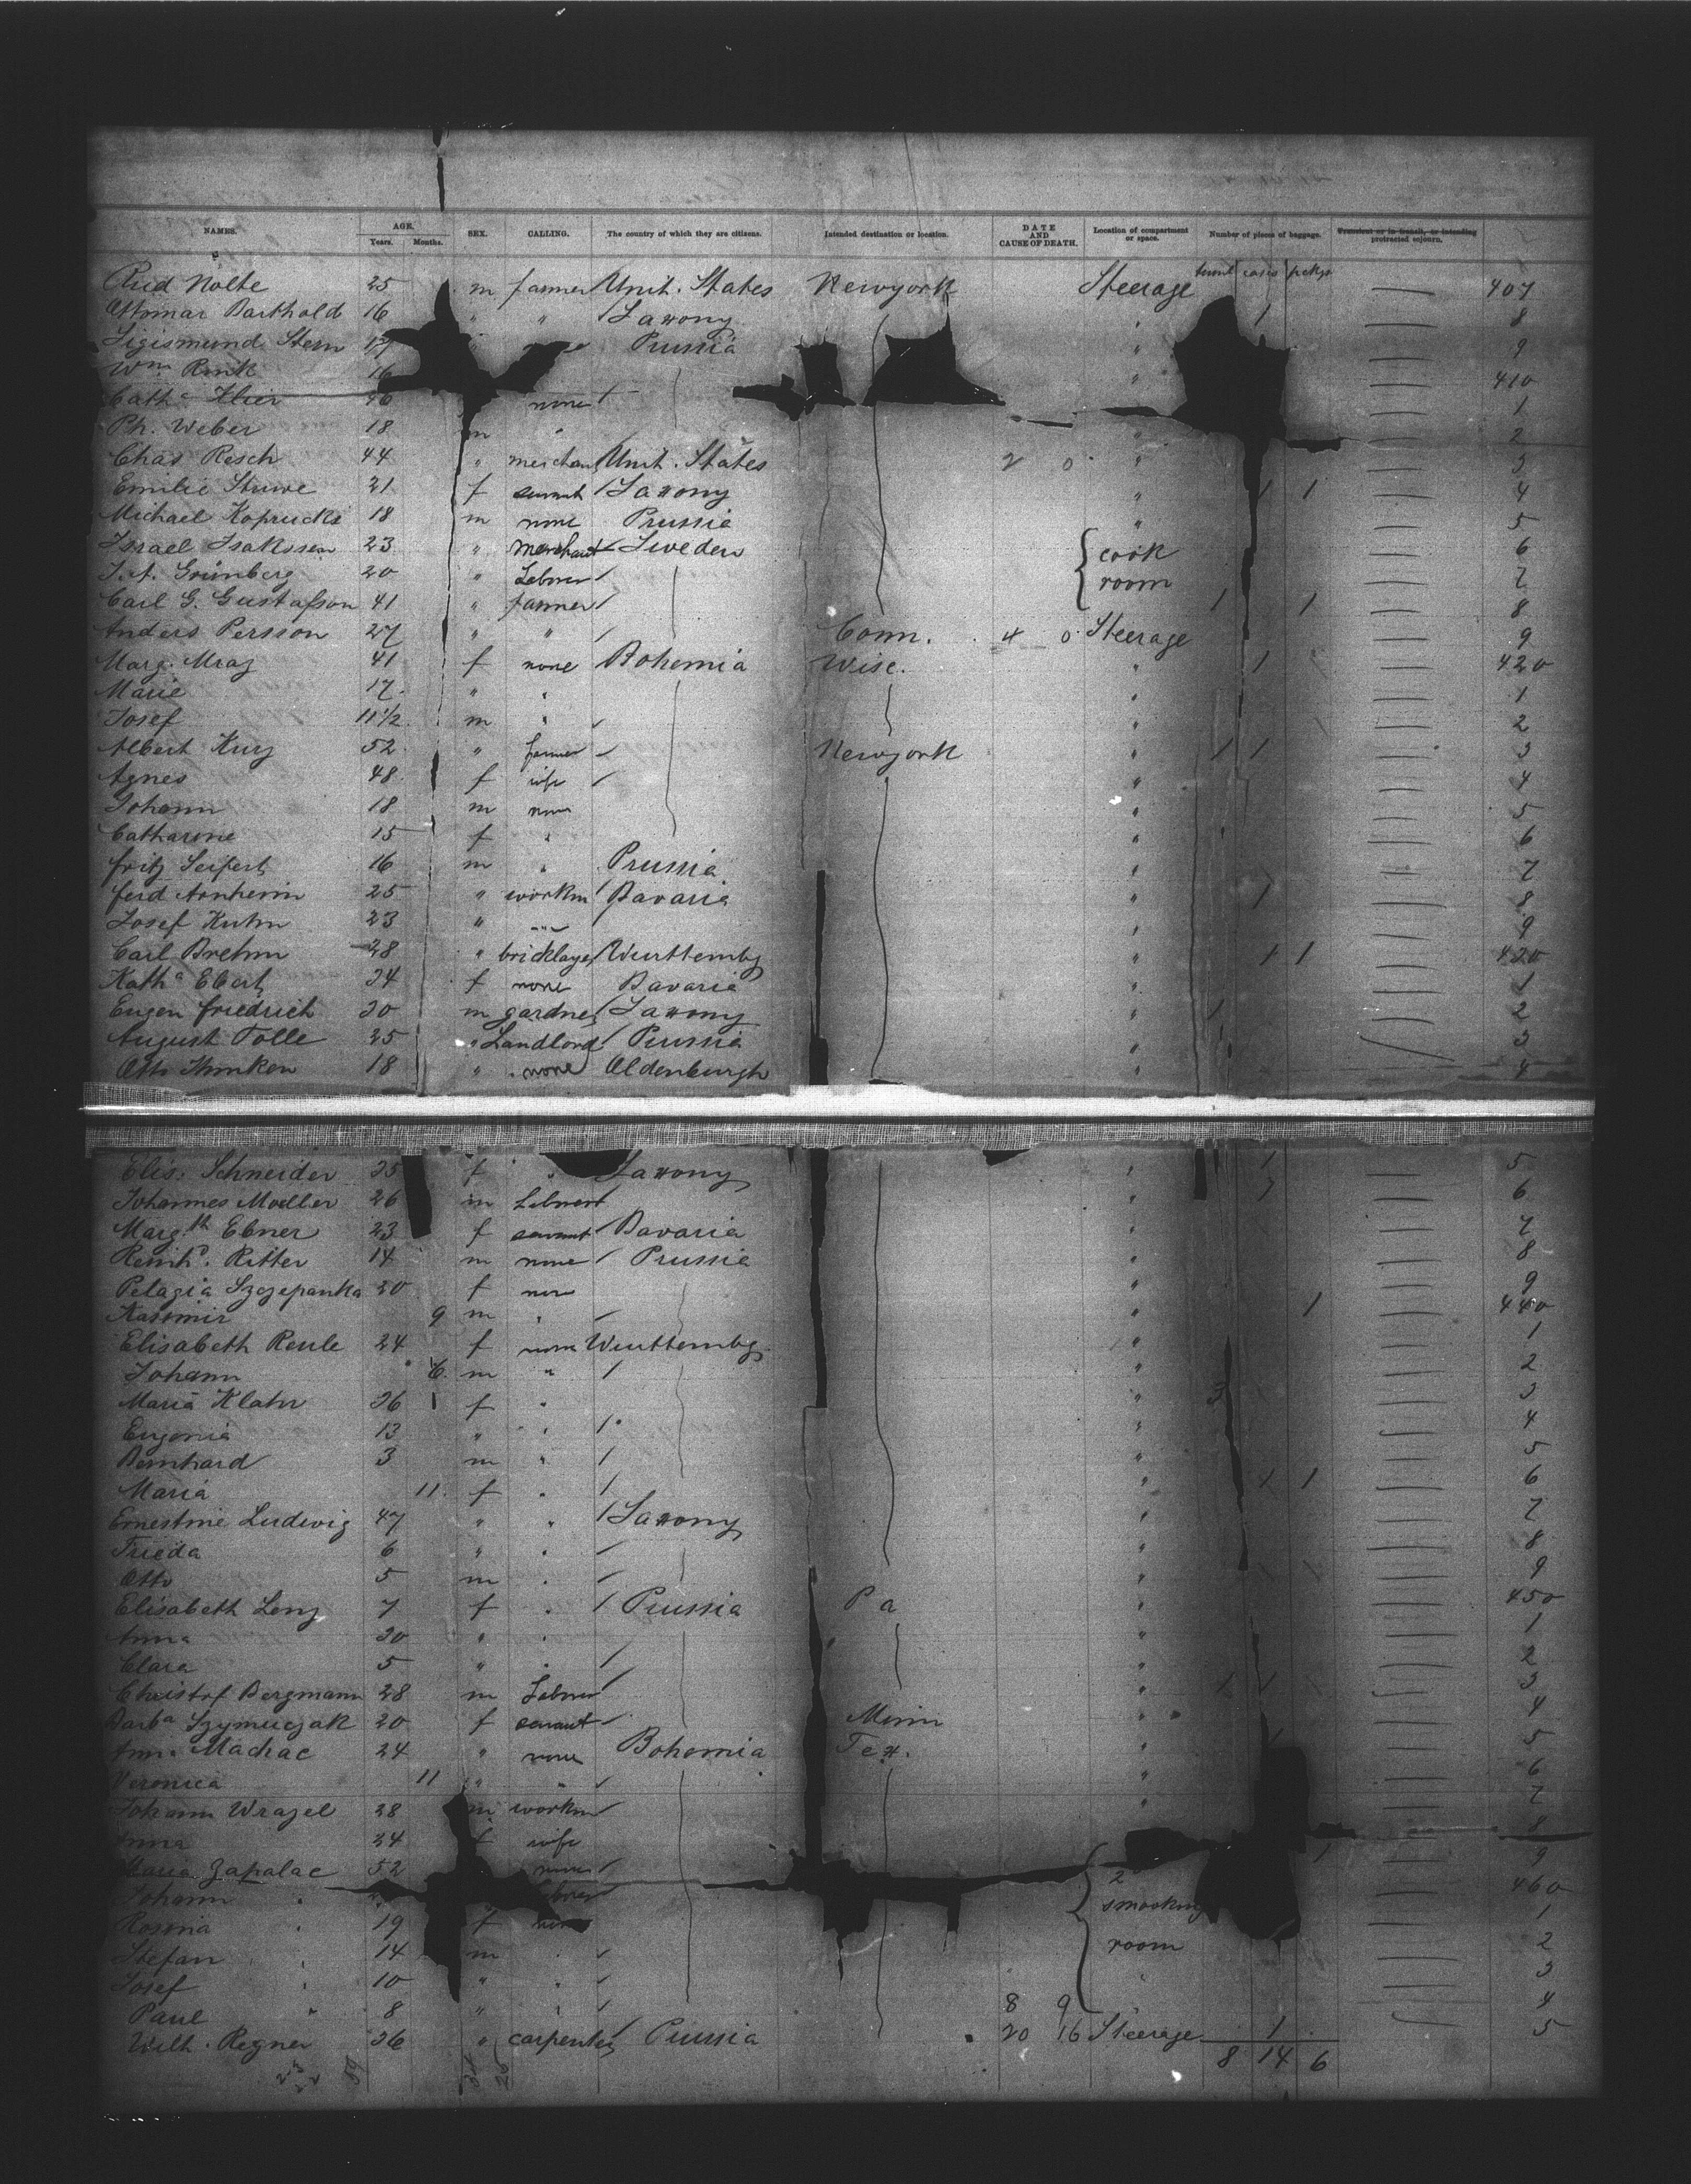 NAMES. AGE. Years. Months. SEX. CALLING. The country of which they are citizens. Intended destination or location. DATE AND CAUSE OF DEATH. Location of compartment or space. Number of pieces of baggage. Transient or in transit, or intending protracted sojourn.
cases pckgs
Nolte 25 m farmer Unit. States Newyork Steerage 407
Ottomar Barthold 16 " " Saxony " 1 8
Sigismund Stern Prussia " 9
Wm Rink 16 " 410
Cath a Klier none 1
Ph. Weber 18 m " " 2
Chas Resch 44 " merchant Unit. States 2 0 " 3
Emilie Stuwe 21 f servant Saxony " 1 1 4
Michael Koprucki 18 m none Prussia " 5
Israel Isakssen 23 " merchant Sweden { cook 6
Grünberg 20 " Laborer room 7
Carl G. Gustafson 41 " farmer 1 1 8
Anders Persson 27 " " Conn. 4 0 Steerage 9
Marg. Mraz 41 f none Bohemia Wisc. " 1 420
Marie 17 " " " 1
Josef 11 1/2 m " " 2
Albert Kurz 52 " farmer Newyork " 1 1 3
Agnes 48 f wife " 4
Johann 18 m none " 5
Catharine 15 f " " 6
Fritz Seifert 16 m " Prussia " 7
Ferd Arnheim 25 " workm Bavaria " 1 8
Josef Kuhn 23 " " " 9
Carl Brehm 28 " bricklayer Wurttembg " 1 1 430
Kath a Ebert 24 f none Bavaria " 1
Eugen Friedrich 20 m gardner Saxony " 1 2
August Tolle 25 " Landlord Prussia " 3
Otto 18 " none Oldenburgh " 4
Elis. Schneider 25 f " Saxony " 1 5
Johannes Moeller 26 m Laborer " 1 6
Margth Ebner 23 f servant Bavaria " 7
Reinhd. Ritter 14 m none Prussia " 8
Pelagia Szczepanka 20 f none " 9
Kasimir 9 m " " 1 440
Elisabeth Reule 24 f none Wurttembg. " 1
Johann 6 m " " 2
Maria Klahr 36 f " " 3 3
Eugenia 13 " " " 4
Bernhard 3 m " " 5
Maria 11 f " " 1 1 6
Ernestine Ludewig 47 " " Saxony " 7
Frieda 6 " " " 8
Otto 5 m " " 9
Elisabeth Lenz 7 f " Prussia Pa " 450
Anna 20 " " " 1
Clara 5 " " " 2
Christof Bergmann 28 m Laborer " 1 1 3
Barba Szymuczak 20 f servant Minn " 4
Machac 24 " none Bohemia Tex. " 5
Veronica 11 " " " 6
Johann Wrazel 28 m workm " 7
Anna 24 f wife 8
Maria Zapalac 52 none { 2 9
Johann " Laborer smooking 460
Rosina " 19 f none 1
Stefan " 14 m " room 2
Josef " 10 " " " 3
Paul " 8 " " 8 9 4
Wilh. Regner 36 " carpenter Prussia 20 16 Steerage 1 5
8 14 6